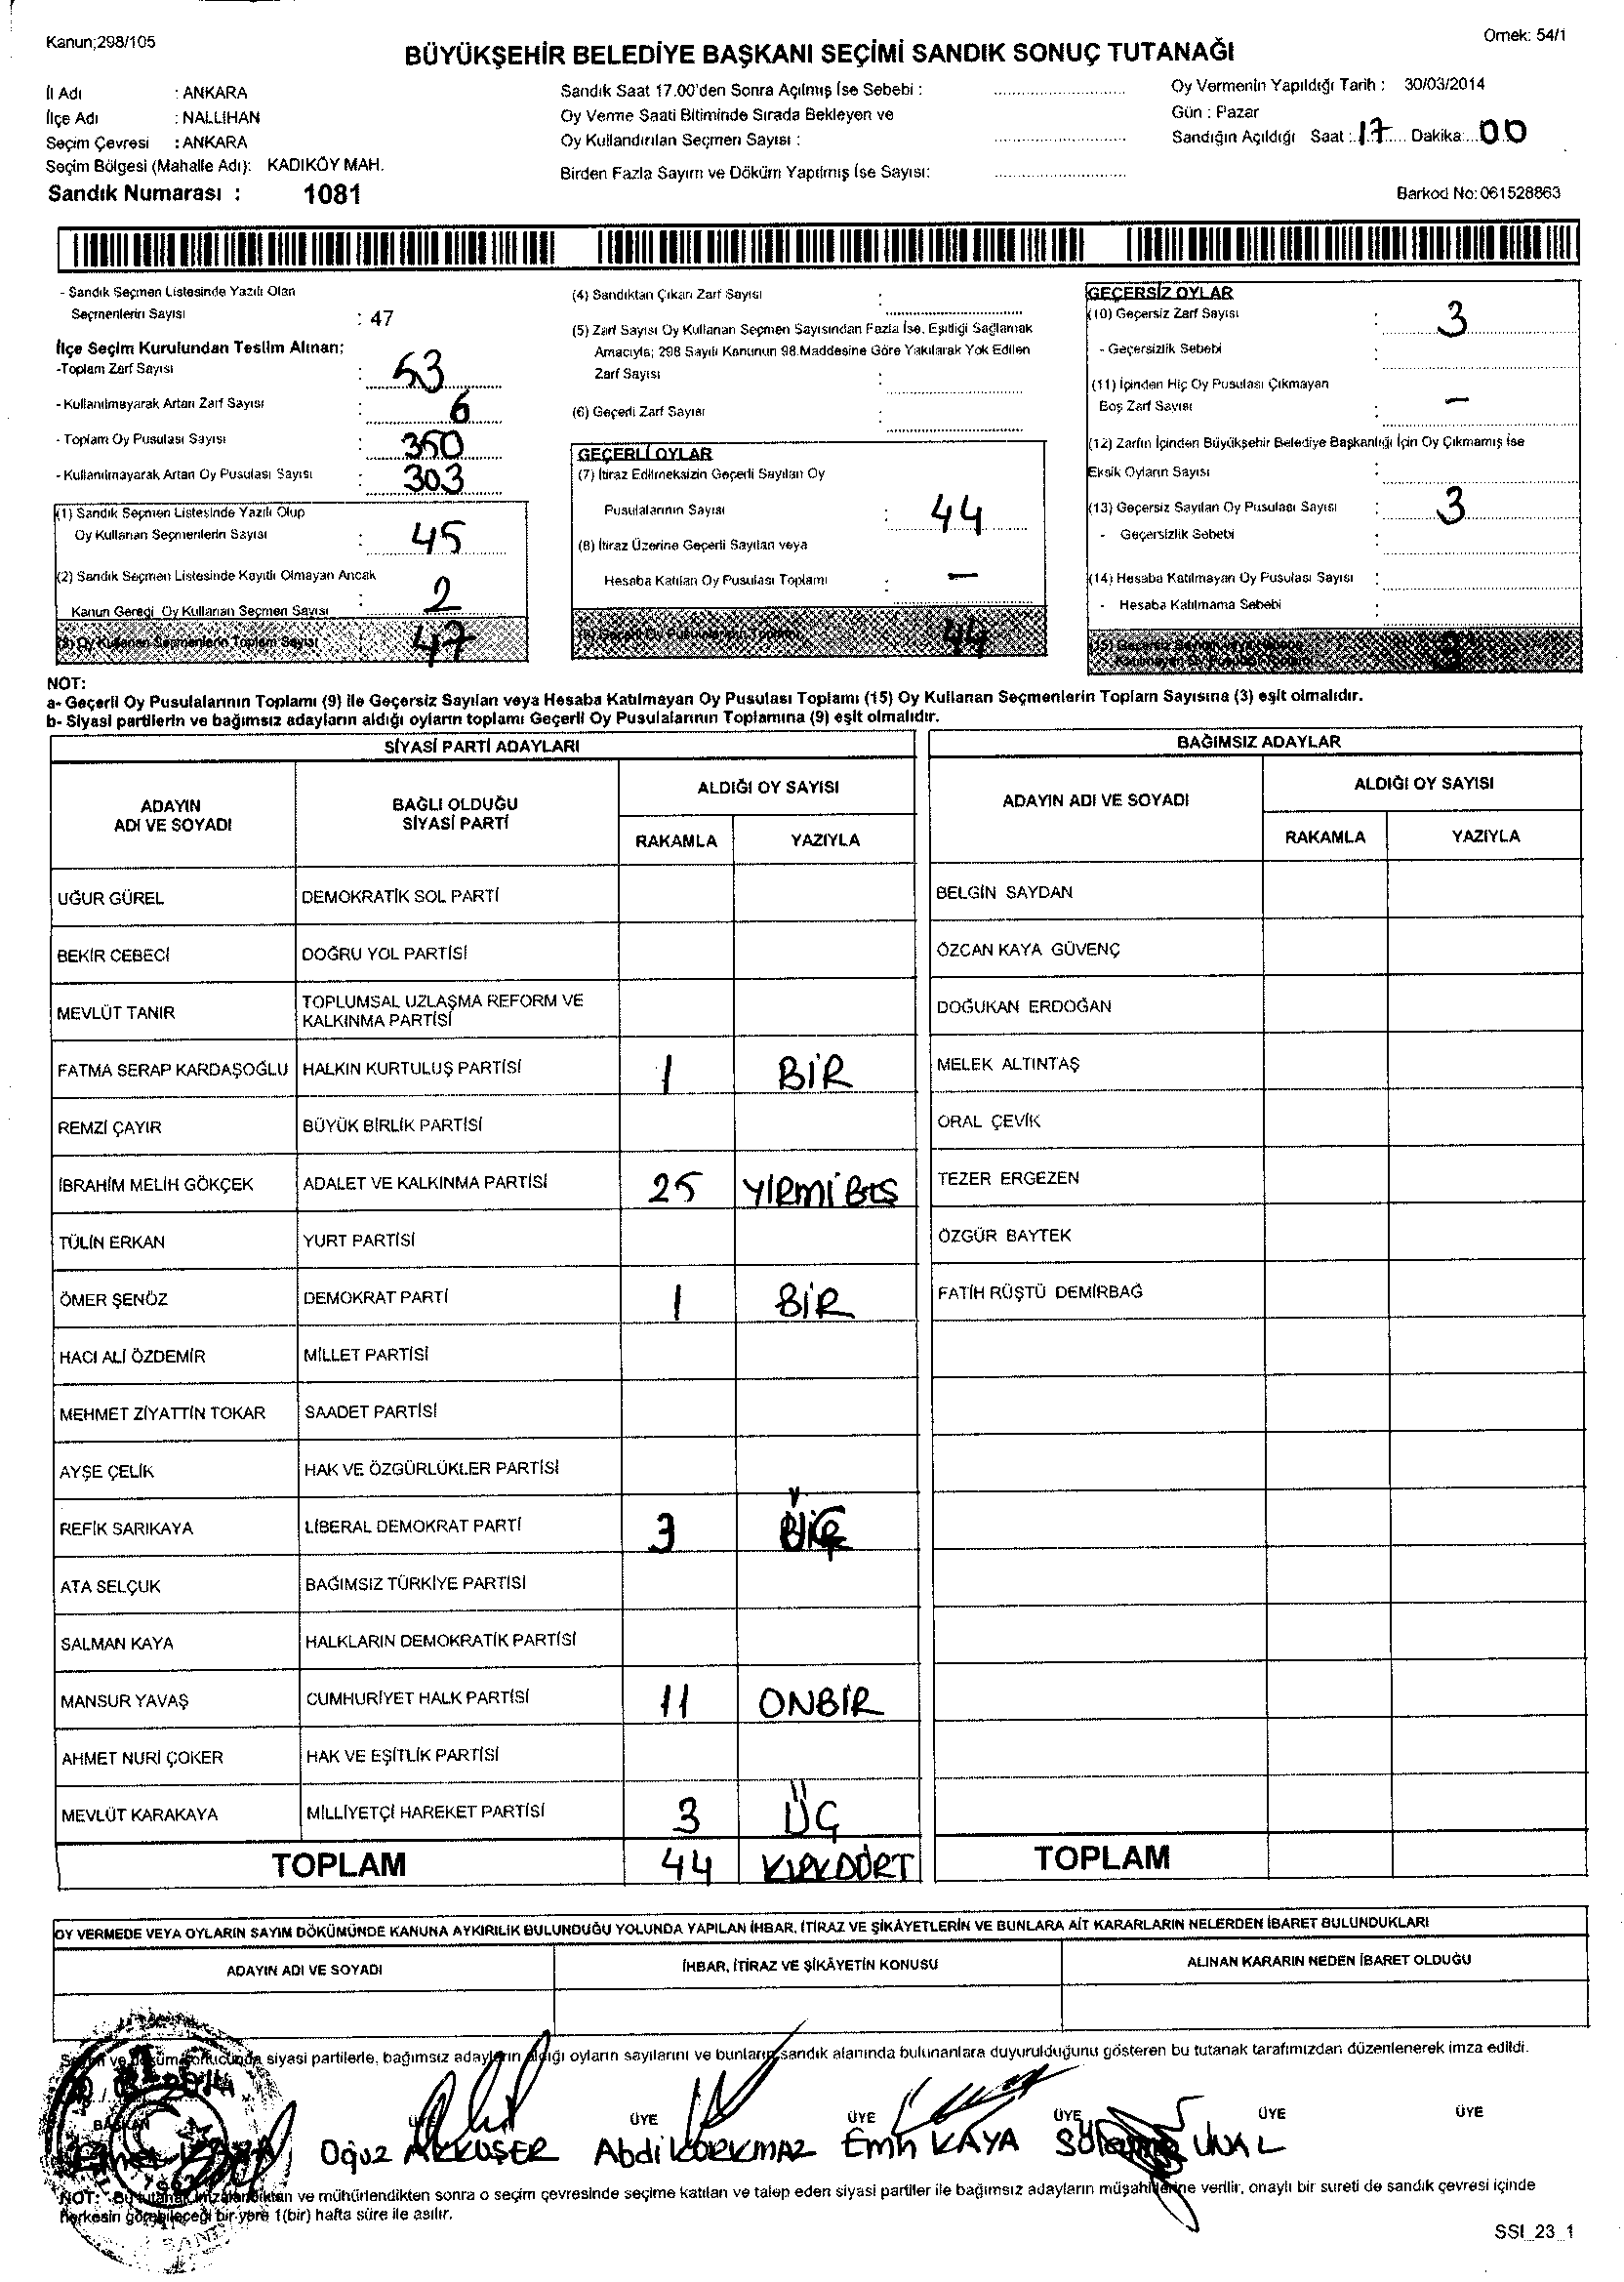 Kanun;298/105
Örnek: 54/1
BÜYÜKŞEHİR BELEDİYE BAŞKANI SEÇİMİ SANDIK SONUÇ TUTANAĞI
İl Adı : ANKARA
İlçe Adı : NALLIHAN
Seçim Çevresi : ANKARA
Seçim Bölgesi (Mahalle Adı): KADIKÖY MAH.
Sandık Numarası : 1081
Sandık Saat 17.00'den Sonra Açılmış İse Sebebi :
Oy Verme Saati Bitiminde Sırada Bekleyen ve
Oy Kullandırılan Seçmen Sayısı :
Birden Fazla Sayım ve Döküm Yapılmış İse Sayısı:
Oy Vermenin Yapıldığı Tarih : 30/03/2014
Gün : Pazar
Sandığın Açıldığı Saat : 17 Dakika: 00
Barkod No: 061528863
- Sandık Seçmen Listesinde Yazılı Olan
Seçmenlerin Sayısı : 47
İlçe Seçim Kurulundan Teslim Alınan;
-Toplam Zarf Sayısı : 53
- Kullanılmayarak Artan Zarf Sayısı : 6
- Toplam Oy Pusulası Sayısı : 350
- Kullanılmayarak Artan Oy Pusulası Sayısı : 303
(1) Sandık Seçmen Listesinde Yazılı Olup
Oy Kullanan Seçmenlerin Sayısı : 45
(2) Sandık Seçmen Listesinde Kayıtlı Olmayan Ancak
Kanun Gereği Oy Kullanan Seçmen Sayısı : 2
(3) Oy Kullanan Seçmenlerin Toplam Sayısı 47
(4) Sandıktan Çıkan Zarf Sayısı :
(5) Zarf Sayısı Oy Kullanan Seçmen Sayısından Fazla İse, Eşitliği Sağlamak
Amacıyla; 298 Sayılı Kanunun 98.Maddesine Göre Yakılarak Yok Edilen
Zarf Sayısı :
(6) Geçerli Zarf Sayısı :
GEÇERLİ OYLAR
(7) İtiraz Edilmeksizin Geçerli Sayılan Oy
Pusulalarının Sayısı : 44
(8) İtiraz Üzerine Geçerli Sayılan veya
Hesaba Katılan Oy Pusulası Toplamı : -
(9) Geçerli Oy Pusulalarının Toplamı 44
GEÇERSİZ OYLAR
(10) Geçersiz Zarf Sayısı : 3
- Geçersizlik Sebebi :
(11) İçinden Hiç Oy Pusulası Çıkmayan
Boş Zarf Sayısı : -
(12) Zarfın İçinden Büyükşehir Belediye Başkanlığı İçin Oy Çıkmamış İse
Eksik Oyların Sayısı :
(13) Geçersiz Sayılan Oy Pusulası Sayısı : 3
- Geçersizlik Sebebi :
(14) Hesaba Katılmayan Oy Pusulası Sayısı :
- Hesaba Katılmama Sebebi :
(15) Geçersiz Sayılan veya Hesaba
Katılmayan Oy Pusulası Toplamı 3
NOT:
a- Geçerli Oy Pusulalarının Toplamı (9) ile Geçersiz Sayılan veya Hesaba Katılmayan Oy Pusulası Toplamı (15) Oy Kullanan Seçmenlerin Toplam Sayısına (3) eşit olmalıdır.
b- Siyasi partilerin ve bağımsız adayların aldığı oyların toplamı Geçerli Oy Pusulalarının Toplamına (9) eşit olmalıdır.
SİYASİ PARTİ ADAYLARI
ADAYIN ADI VE SOYADI BAĞLI OLDUĞU SİYASİ PARTİ ALDIĞI OY SAYISI
RAKAMLA YAZIYLA
UĞUR GÜREL DEMOKRATİK SOL PARTİ
BEKİR CEBECİ DOĞRU YOL PARTİSİ
MEVLÜT TANIR TOPLUMSAL UZLAŞMA REFORM VE KALKINMA PARTİSİ
FATMA SERAP KARDAŞOĞLU HALKIN KURTULUŞ PARTİSİ 1 BİR
REMZİ ÇAYIR BÜYÜK BİRLİK PARTİSİ
İBRAHİM MELİH GÖKÇEK ADALET VE KALKINMA PARTİSİ 25 YİRMİ BEŞ
TÜLİN ERKAN YURT PARTİSİ
ÖMER ŞENÖZ DEMOKRAT PARTİ 1 BİR
HACI ALİ ÖZDEMİR MİLLET PARTİSİ
MEHMET ZİYATTİN TOKAR SAADET PARTİSİ
AYŞE ÇELİK HAK VE ÖZGÜRLÜKLER PARTİSİ
REFİK SARIKAYA LİBERAL DEMOKRAT PARTİ 3
ATA SELÇUK BAĞIMSIZ TÜRKİYE PARTİSİ
SALMAN KAYA HALKLARIN DEMOKRATİK PARTİSİ
MANSUR YAVAŞ CUMHURİYET HALK PARTİSİ 11 ONBİR
AHMET NURİ ÇOKER HAK VE EŞİTLİK PARTİSİ
MEVLÜT KARAKAYA MİLLİYETÇİ HAREKET PARTİSİ 3 ÜÇ
TOPLAM 44 KIRKDÖRT
BAĞIMSIZ ADAYLAR
ADAYIN ADI VE SOYADI ALDIĞI OY SAYISI
RAKAMLA YAZIYLA
BELGİN SAYDAN
ÖZCAN KAYA GÜVENÇ
DOĞUKAN ERDOĞAN
MELEK ALTINTAŞ
ORAL ÇEVİK
TEZER ERGEZEN
ÖZGÜR BAYTEK
FATİH RÜŞTÜ DEMİRBAĞ
TOPLAM
OY VERMEDE VEYA OYLARIN SAYIM DÖKÜMÜNDE KANUNA AYKIRILIK BULUNDUĞU YOLUNDA YAPILAN İHBAR, İTİRAZ VE ŞİKÂYETLERİN VE BUNLARA AİT KARARLARIN NELERDEN İBARET BULUNDUKLARI
ADAYIN ADI VE SOYADI İHBAR, İTİRAZ VE ŞİKÂYETİN KONUSU ALINAN KARARIN NEDEN İBARET OLDUĞU
Sayım ve döküm sonucunda siyasi partilerle, bağımsız adayların aldığı oyların sayılarını ve bunların sandık alanında bulunanlara duyurulduğunu gösteren bu tutanak tarafımızdan düzenlenerek imza edildi.
BAŞKAN ÜYE ÜYE ÜYE ÜYE ÜYE ÜYE
Oğuz AKKUŞER Abdi KORKMAZ Emin KAYA Süleyman ÜNAL
NOT: Bu tutanak imzalandıktan ve mühürlendikten sonra o seçim çevresinde seçime katılan ve talep eden siyasi partiler ile bağımsız adayların müşahitlerine verilir, onaylı bir sureti de sandık çevresi içinde
herkesin görebileceği bir yere 1(bir) hafta süre ile asılır.
SSI_23_1